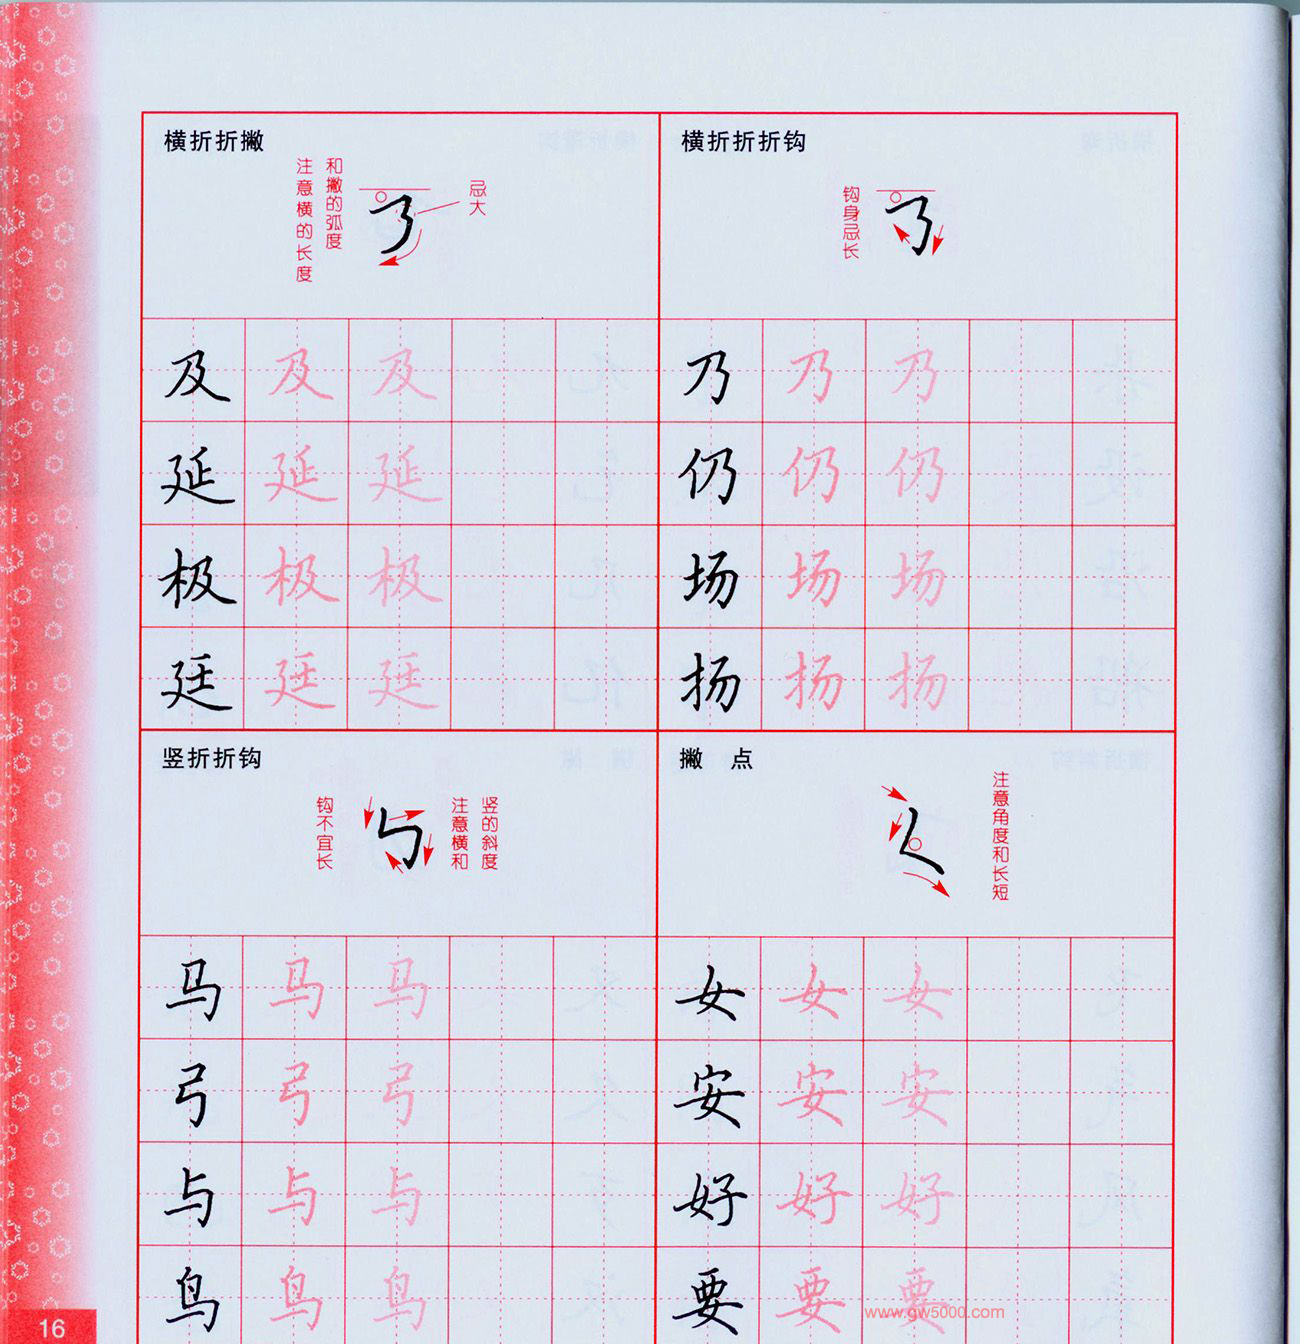 横折折撇
注意横的长度
和撇的弧度
忌大
及 及 及
延 延 延
极 极 极
廷 廷 廷
横折折折钩
钩身忌长
乃 乃 乃
仍 仍 仍
场 场 场
扬 扬 扬
竖折折钩
钩不宜长
注意横和
竖的斜度
马 马 马
弓 弓 弓
与 与 与
鸟 鸟 鸟
撇 点
注意角度和长短
女 女 女
安 安 安
好 好 好
要 要 要
www.gw5000.com
16